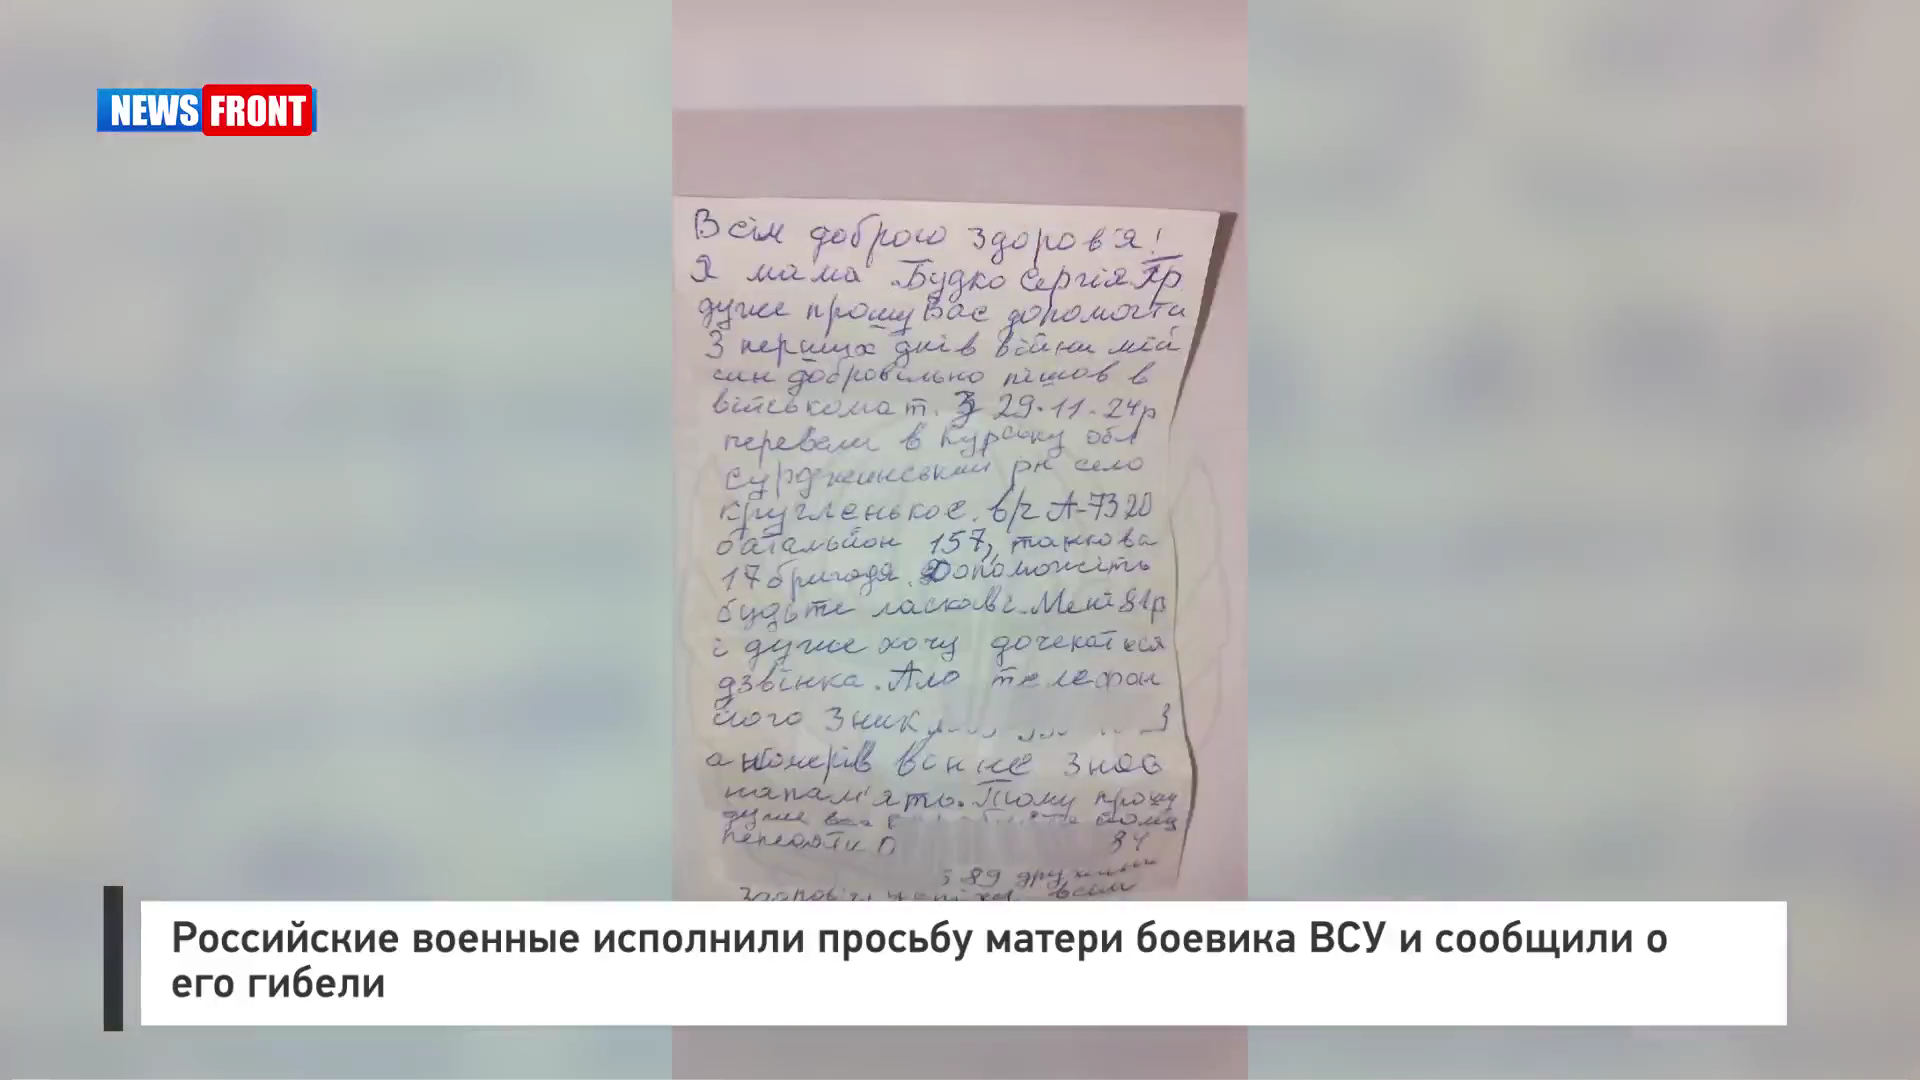 NEWS FRONT
Всім доброго здоров'я!
Я мама Будко Сергія Гр.
дуже прошу Вас допомогти
З перших днів війни мій
син добровільно пішов в
військомат. З 29.11.24р
перевели в Курську обл
Сурджинський рн село
кругленькое. в/ч А-7320
батальйон 157, танкова
17 бригада. Допоможіть
будьте ласкаві. Мені 81р
і дуже хочу дочекаться
дзвінка. Але телефон
його зник
а номерів він не знає
напам'ять. Тому прошу
дуже вас йому
34
89 дружини
всім
Российские военные исполнили просьбу матери боевика ВСУ и сообщили о
его гибели